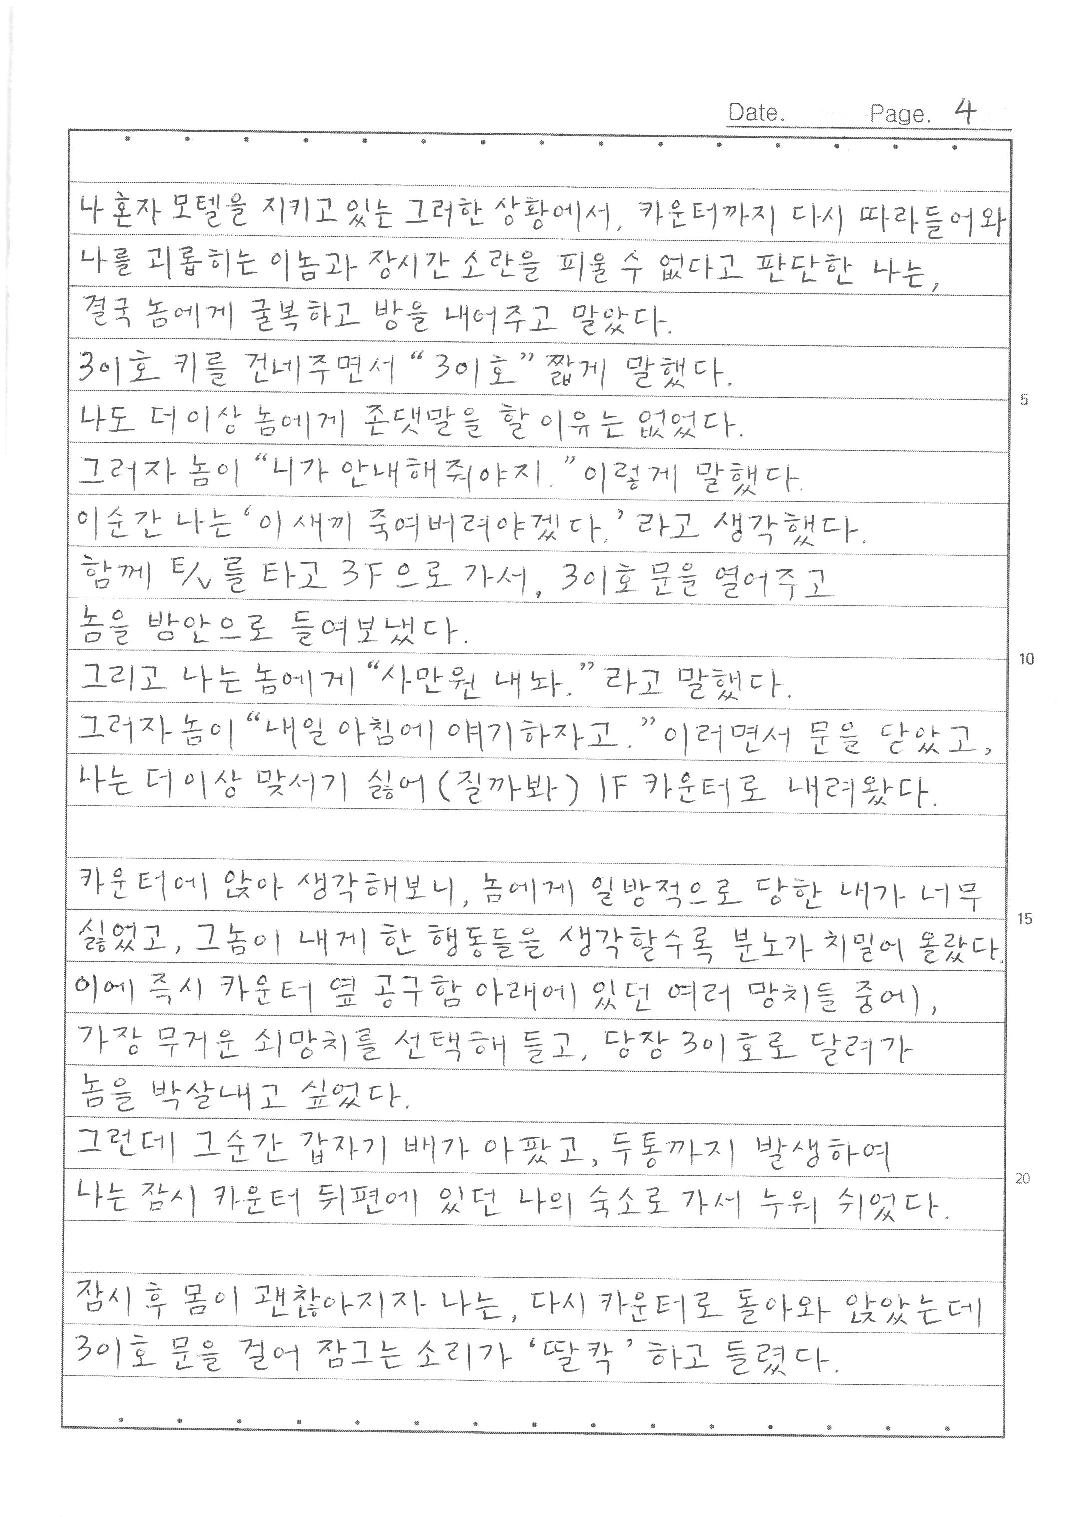 Date. Page. 4
나 혼자 모텔을 지키고 있는 그러한 상황에서, 카운터까지 다시 따라들어와
나를 괴롭히는 이놈과 장시간 소란을 피울 수 없다고 판단한 나는,
결국 놈에게 굴복하고 방을 내어주고 말았다.
301호 키를 건네주면서 "301호" 짧게 말했다.
5
나도 더이상 놈에게 존댓말을 할 이유는 없었다.
그러자 놈이 "니가 안내해줘야지." 이렇게 말했다.
이순간 나는 '이 새끼 죽여버려야겠다.' 라고 생각했다.
함께 E/V를 타고 3F으로 가서, 301호 문을 열어주고
놈을 방안으로 들여보냈다.
10
그리고 나는 놈에게 "사만원 내놔." 라고 말했다.
그러자 놈이 "내일 아침에 얘기하자고." 이러면서 문을 닫았고,
나는 더이상 맞서기 싫어 (질까봐) 1F 카운터로 내려왔다.
카운터에 앉아 생각해보니, 놈에게 일방적으로 당한 내가 너무
15
싫었고, 그놈이 내게 한 행동들을 생각할수록 분노가 치밀어 올랐다.
이에 즉시 카운터 옆 공구함 아래에 있던 여러 망치들 중에,
가장 무거운 쇠망치를 선택해 들고, 당장 301호로 달려가
놈을 박살내고 싶었다.
그런데 그순간 갑자기 배가 아팠고, 두통까지 발생하여
20
나는 잠시 카운터 뒤편에 있던 나의 숙소로 가서 누워 쉬었다.
잠시 후 몸이 괜찮아지자 나는, 다시 카운터로 돌아와 앉았는데
301호 문을 걸어 잠그는 소리가 '딸칵' 하고 들렸다.